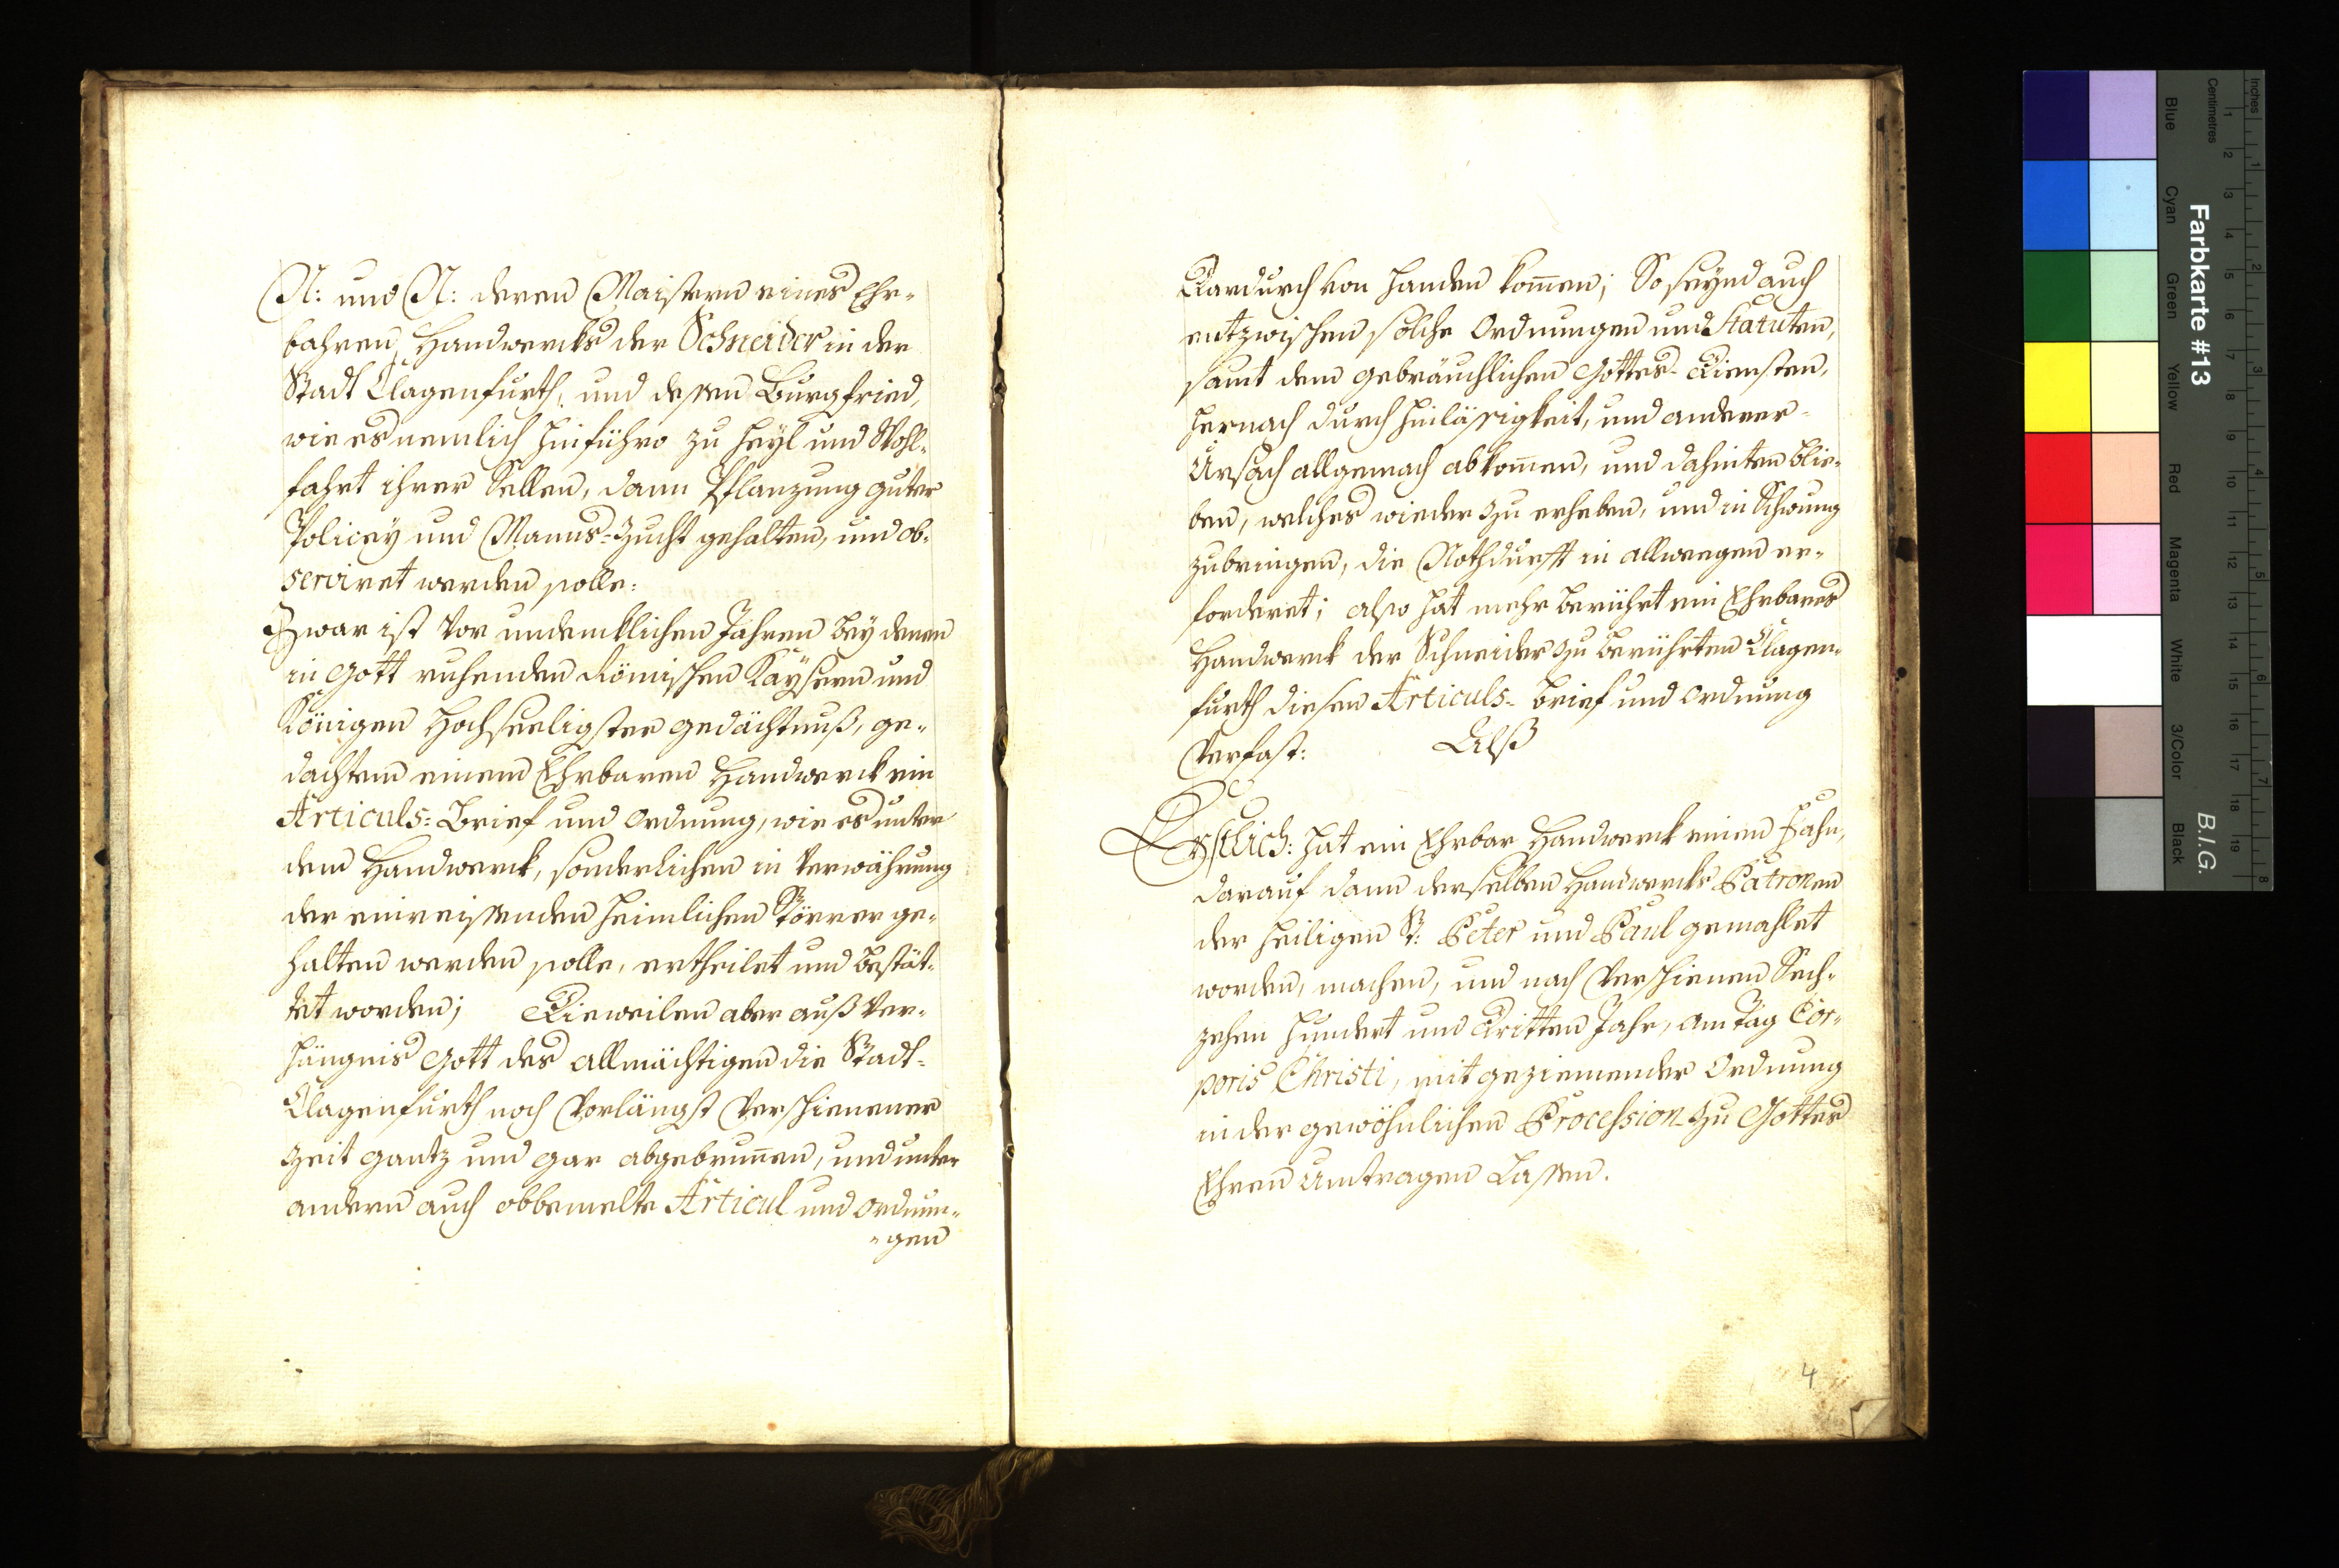 N: und N: deren Maistern eines Ehr-
bahren Handwercks der Schneider in der
Stadt Clagenfurth, und dessen Burgfried,
wie es nemlich hinführo zu Heyl und Wohl-
fahrt ihrer Sellen, dann Pflanzung guter
Policey und Manns-Zucht gehalten, und ob-
serviret werden solle:
Zwar ist vor undencklichen Jahren bey denen
in Gott ruhenden Römischen Kaysern und
Königen Hochseeligster gedächtnuß, ge-
dachtem einem Ehrbaren Handwerck ein
Articuls-Brief und Ordnung, wie es unter
dem Handwerck, sonderlichen in Verwährung
der einreissenden heimlichen Störrer ge-
halten werden solle, ertheilet und bestät-
tet worden; Dieweilen aber auß Ver-
hängnis Gott des allmächtigen die Stadt-
Clagenfurth noch Vorlängst Verschienener
Zeit gantz und gar abgebrunnen, und unter
andern auch obbemelte Articul und Ordnun-
-gen
Dardurch von handen kommen; So seynd auch
entzwischen solche Ordnungen und Statuten,
samt dem gebräuchlichen Gottes-Diensten,
hernach durch hinlässigkeit, und anderer-
Ursach allgemach abkommen, und dahinten blie-
ben, welches wieder zu erheben, und in Schwung
zubringen, die Nothdurfft in allweegen er-
forderet; also hat mehr berührt ein Ehrbares
Handwerck der Schneider zu berührten Clagen-
furth diesen Articuls-brief und Ordnung
Verfast: Alß
Erstlich: hat ein Ehrbar Handwerck einen Fahn,
darauf dann derselben Handwercks Patronen
der heiligen St: Peter und Paul gemahlet
worden, machen, und nach Verschienen Sech-
zehen hundert und Dritten Jahr, am Tag Cor-
poris Christi, mit geziemender Ordnung
in der gewöhnlichen Procession zu Gottes
Ehren Umtragen Lassen.
4
Farbkarte #13
B.I.G.
Inches
Centimetres
Blue Cyan Green Yellow Red Magenta White 3/Color Black
1 2 3 4 5 6 7 8 9 10 11 12 13 14 15 16 17 18 19
1 2 3 4 5 6 7 8